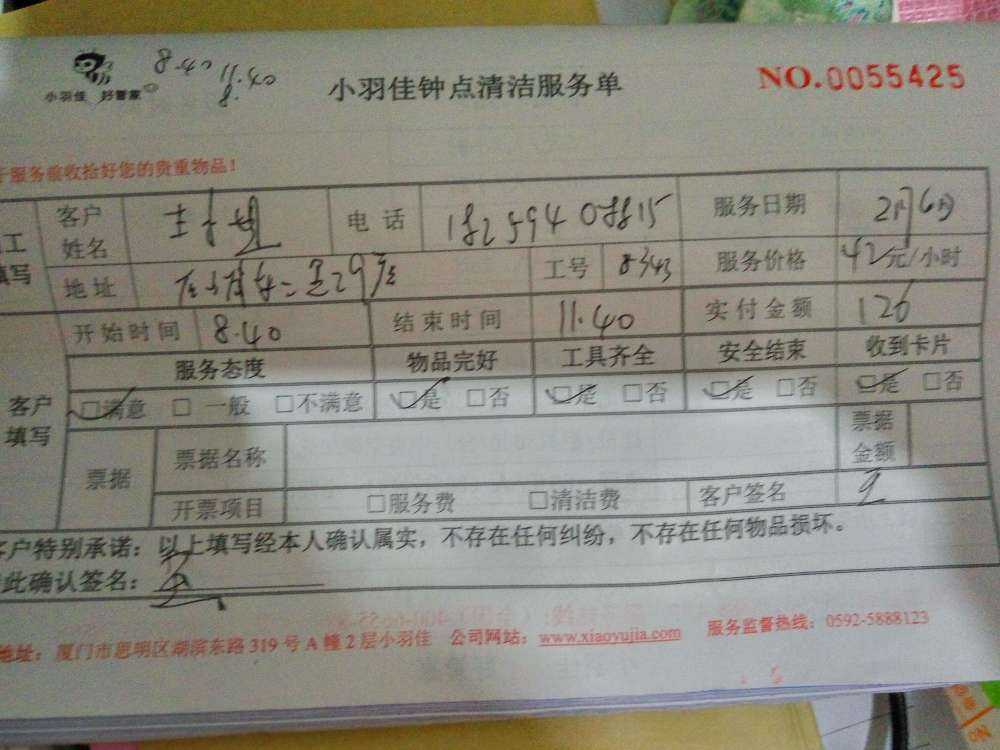 小羽佳 好管家
8-40 11.40
8.
小羽佳钟点清洁服务单
NO.0055425
服务前收拾好您的贵重物品!
工填写 客户姓名 电话 服务日期 2月6日
地址 工号 8343 服务价格 42元/小时
客户填写 开始时间 8.40 结束时间 11.40 实付金额 126
服务态度 物品完好 工具齐全 安全结束 收到卡片
□满意 □一般 □不满意 □是 □否 □是 □否 □是 □否 □是 □否
票据 票据名称 票据金额
开票项目 □服务费 □清洁费 客户签名
客户特别承诺：以上填写经本人确认属实，不存在任何纠纷，不存在任何物品损坏。
此确认签名：
地址：厦门市思明区湖滨东路319号A幢2层小羽佳 公司网站：www.xiaoyujia.com 服务监督热线：0592-5888123